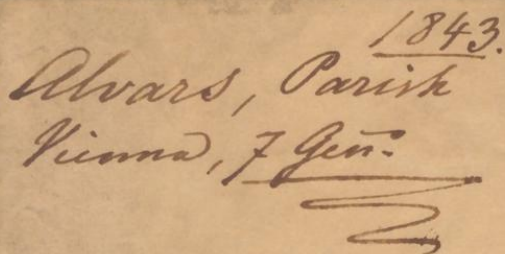 1843.
Alvars, Parish
Vienna, 7 Gen.